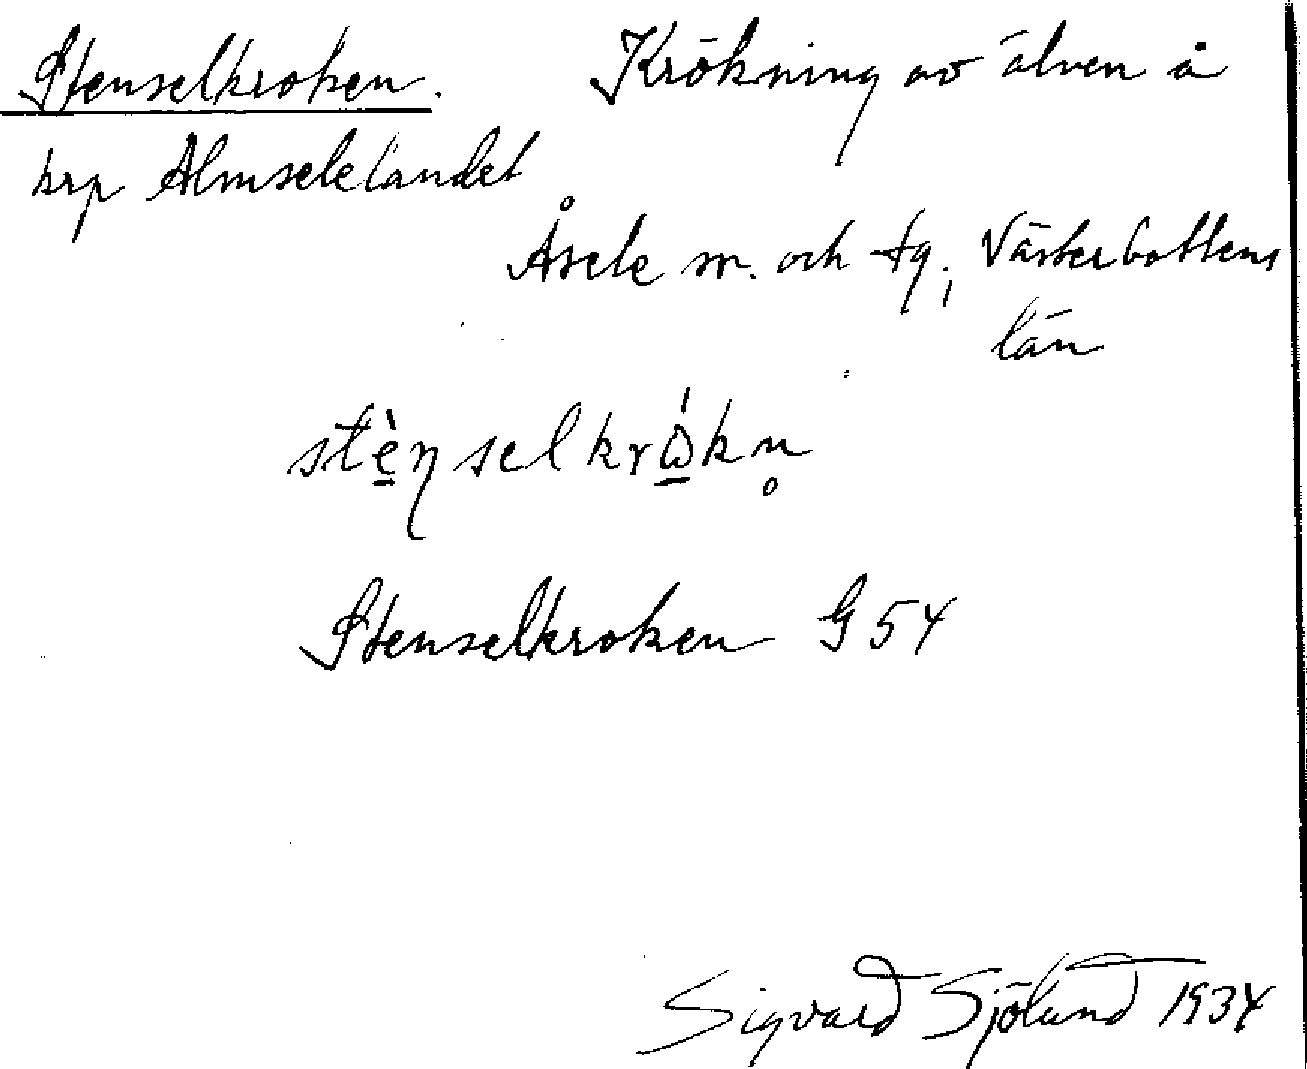 Stenselkroken. Krökning av älven å
krp Almselelandet
Åsele sn. och tg; Västerbottens
län
stè̱ŋselkrώ̱kn̥
Stenselkroken G 54
Sigvard Sjölund 1934